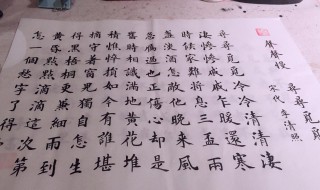 聲聲慢
宋代 李清照
尋尋覓覓冷冷清清淒
淒慘慘戚戚乍暖還寒
時候最難將息三盃兩
盞淡酒怎敵他晚來風
急雁過也正傷心卻是
舊時相識滿地黃花堆
積憔悴損如今有誰堪
摘守著窗兒獨自怎生
得黑梧桐更兼細雨到
黃昏點點滴滴這次第
怎一個愁字了得